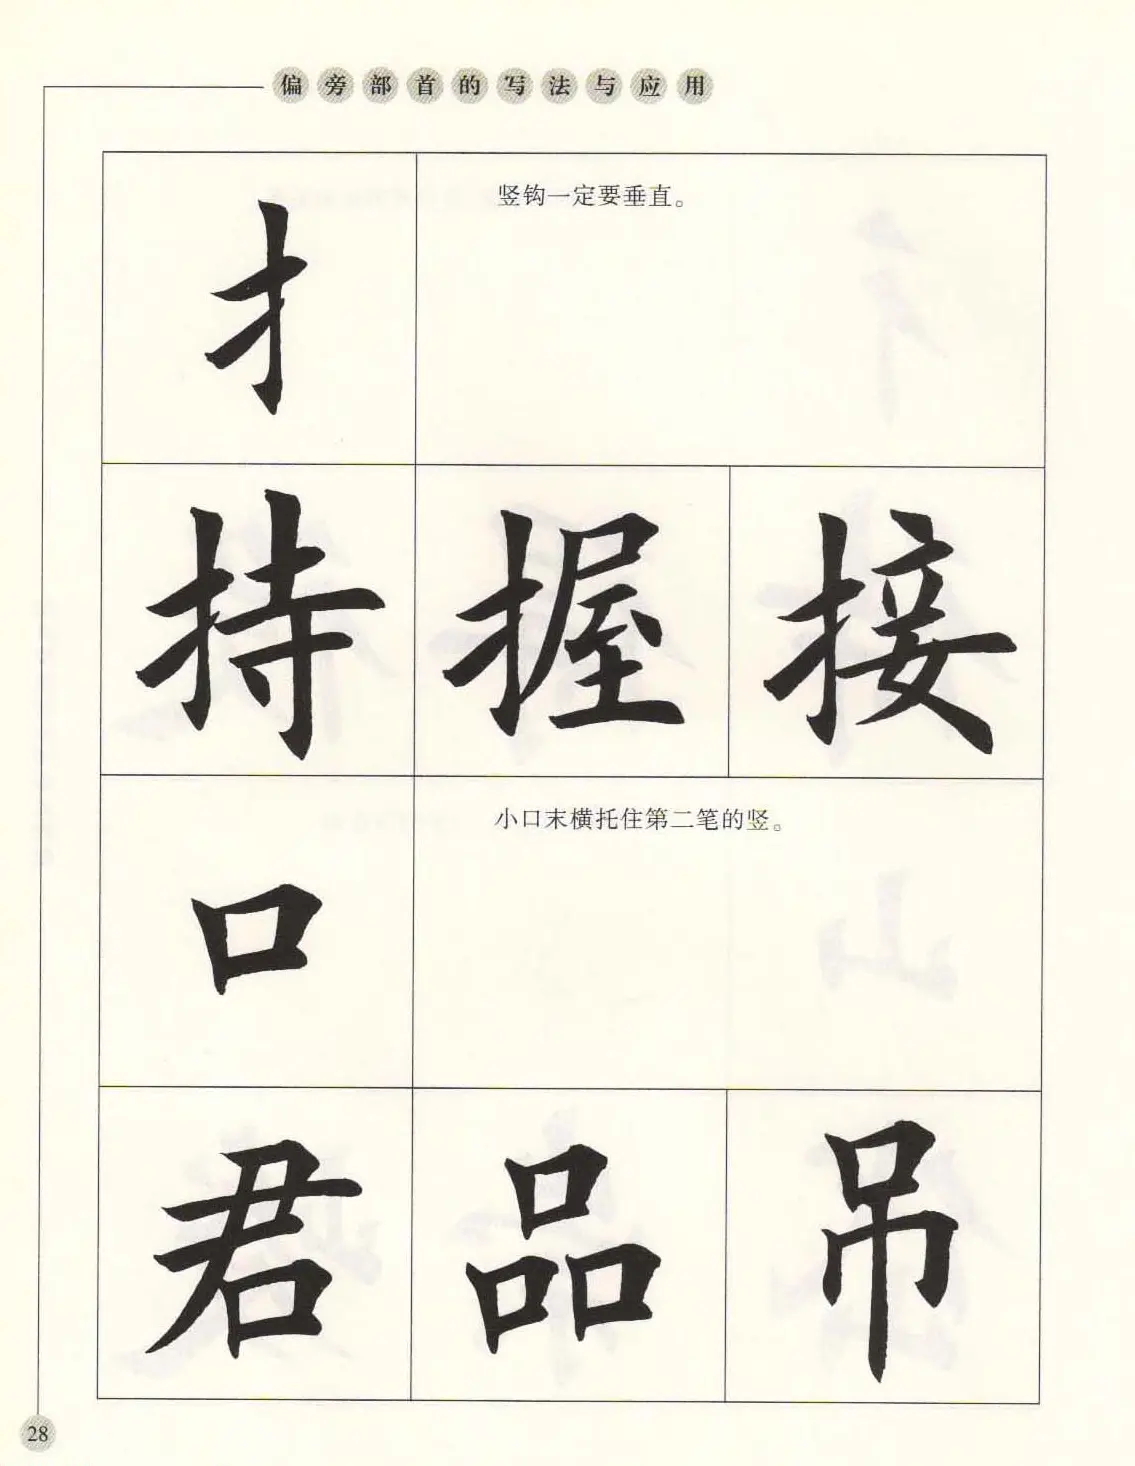 偏旁部首的写法与应用
扌
竖钩一定要垂直。
持 握 接
口
小口末横托住第二笔的竖。
君 品 吊
28